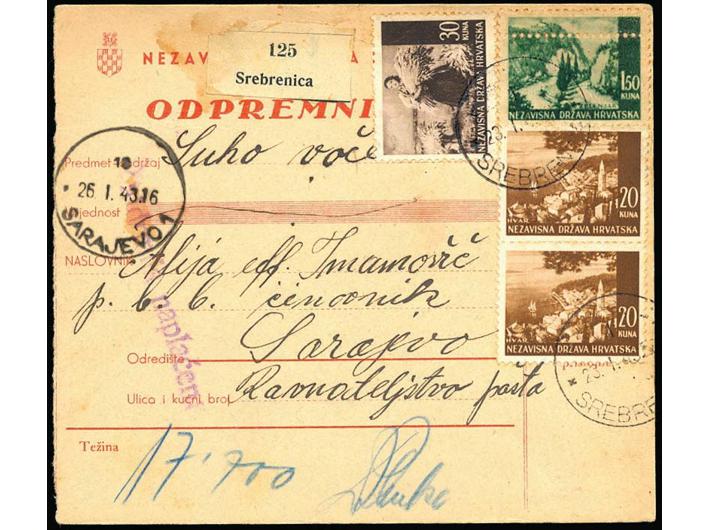 NEZAV
A
125
Srebrenica
ODPREMNI
Suho voće
Predmet
držaj
18
26. I. 43.16
SARAJEVO 1
ijednost
NASLOVNIK
Alija eff. Imamović
p. b. b. činovnik
naplaćena
Sarajevo
Odredište
Ravnateljstvo pošta
Ulica i kućni broj
Težina
17·700
30
KUNA
NEZAVISNA DRŽAVA HRVATSKA
1.50
KUNA
ZELENJAK
NEZAVISNA DRŽAVA HRVATSKA
23. I.
SREBREN
20
KUNA
HVAR
NEZAVISNA DRŽAVA HRVATSKA
20
KUNA
HVAR
NEZAVISNA DRŽAVA HRVATSKA
23. I. 43
SREBREN